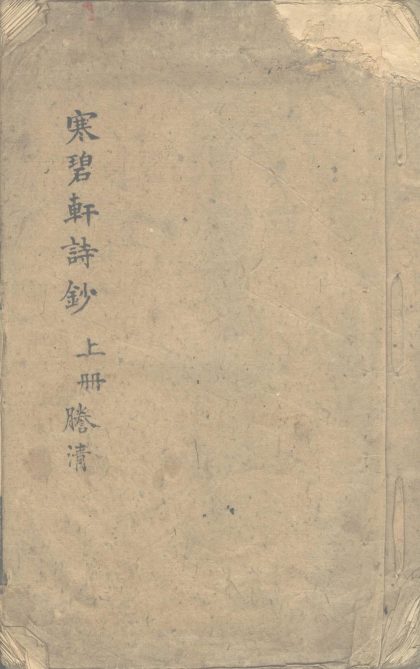 寒碧軒詩鈔
上册謄清